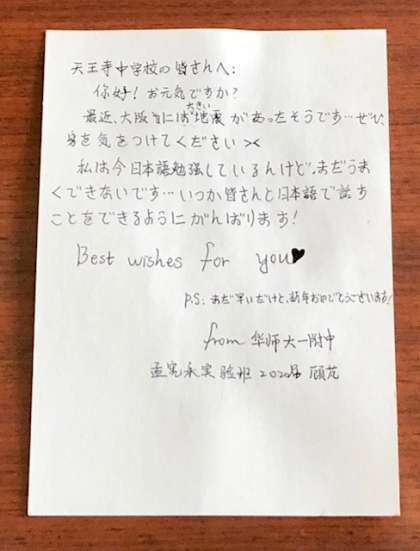 天王寺中学校の皆さんへ:
你好! お元気ですか?
最近、大阪には地震があったそうです…ぜひ、
大きい
身を気をつけてください ><
私は今日本語勉強しているんけど、まだうま
くできないです…いつか皆さんと日本語で話す
ことをできるようにがんばります!
Best wishes for you♥
P.S: まだ早いだけど、新年おめでとうございます!
from 华师大一附中
孟宪承实验班 2020届